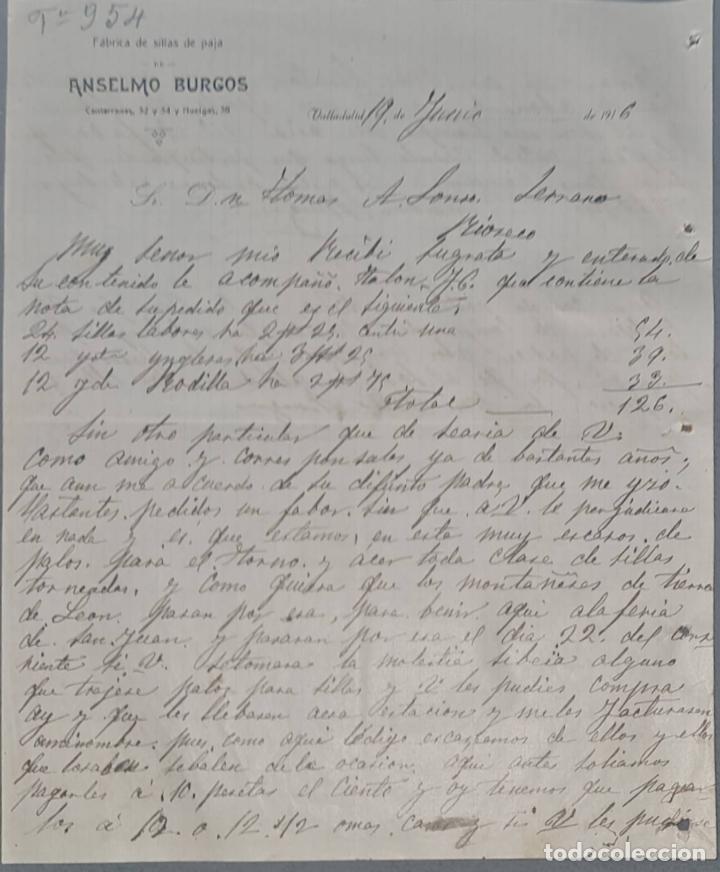 Tº 954
Fábrica de sillas de paja
DE
ANSELMO BURGOS
Cantarranas, 32 y 34 y Huelgas, 38
Valladolid 19 de Junio de 1916
Sr. Dn Tomas A. Lonso. Serrano
Rioseco
Muy Senor mio Recibi sugrata y enterado de
su contenido le acompaño. talon. F.C. que contiene la
nota de supedido que es el siguiente;
24 sillas labores ha 2 pts 25. una 54.
12 ynglesas ha 3 pts 25 39.
12 yde Rodilla ha 2 pts 75 33.
Total 126.
Sin otro particular que de searia de V.
como amigo y corres ponsales ya de bastantes años;
que aun me a cuerdo de su difunto padre que me yzo.
Bastantes. pedidos un fabor. sin que a V. le perjudicara
en nada y es. que estamos, en esta muy escasos. de
palos. para el torno. y acer toda clase de sillas
torneadas, y como quiera que los montañeses de tierra
de Leon. pasan por esa, para benir. aqui alaferia
de san Juan y pasaran por esa el dia 22. del corr
riente si V. setomara la molestia sibeia alguno
que trajese palos para sillas y V les pudies compra
ay y que les llebasen aesa estacion y me los facturasen
aminombre. pues como aqui ledigo escasamos de ellos y ellos
que losaben sebalen dela ocasion. aqui antes soliamos
pagarles á 10. pesetas el ciento y oy tenemos que pagar
los á 12. o 12 1/2 omas y si V les